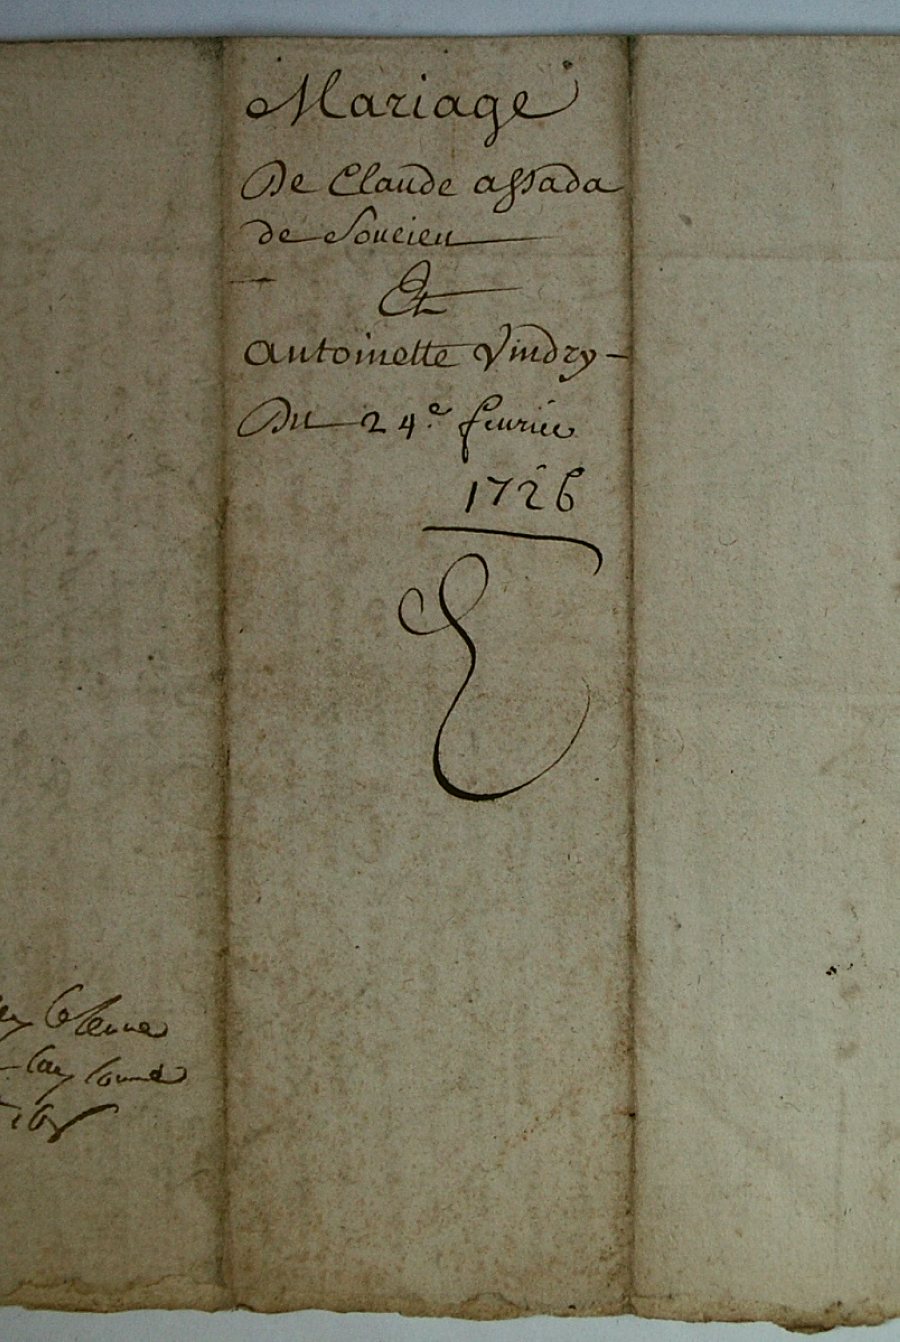 Mariage
De Claude assada
de Soucieu
Et
antoinette Vindry
Du 24.e feurier
1726